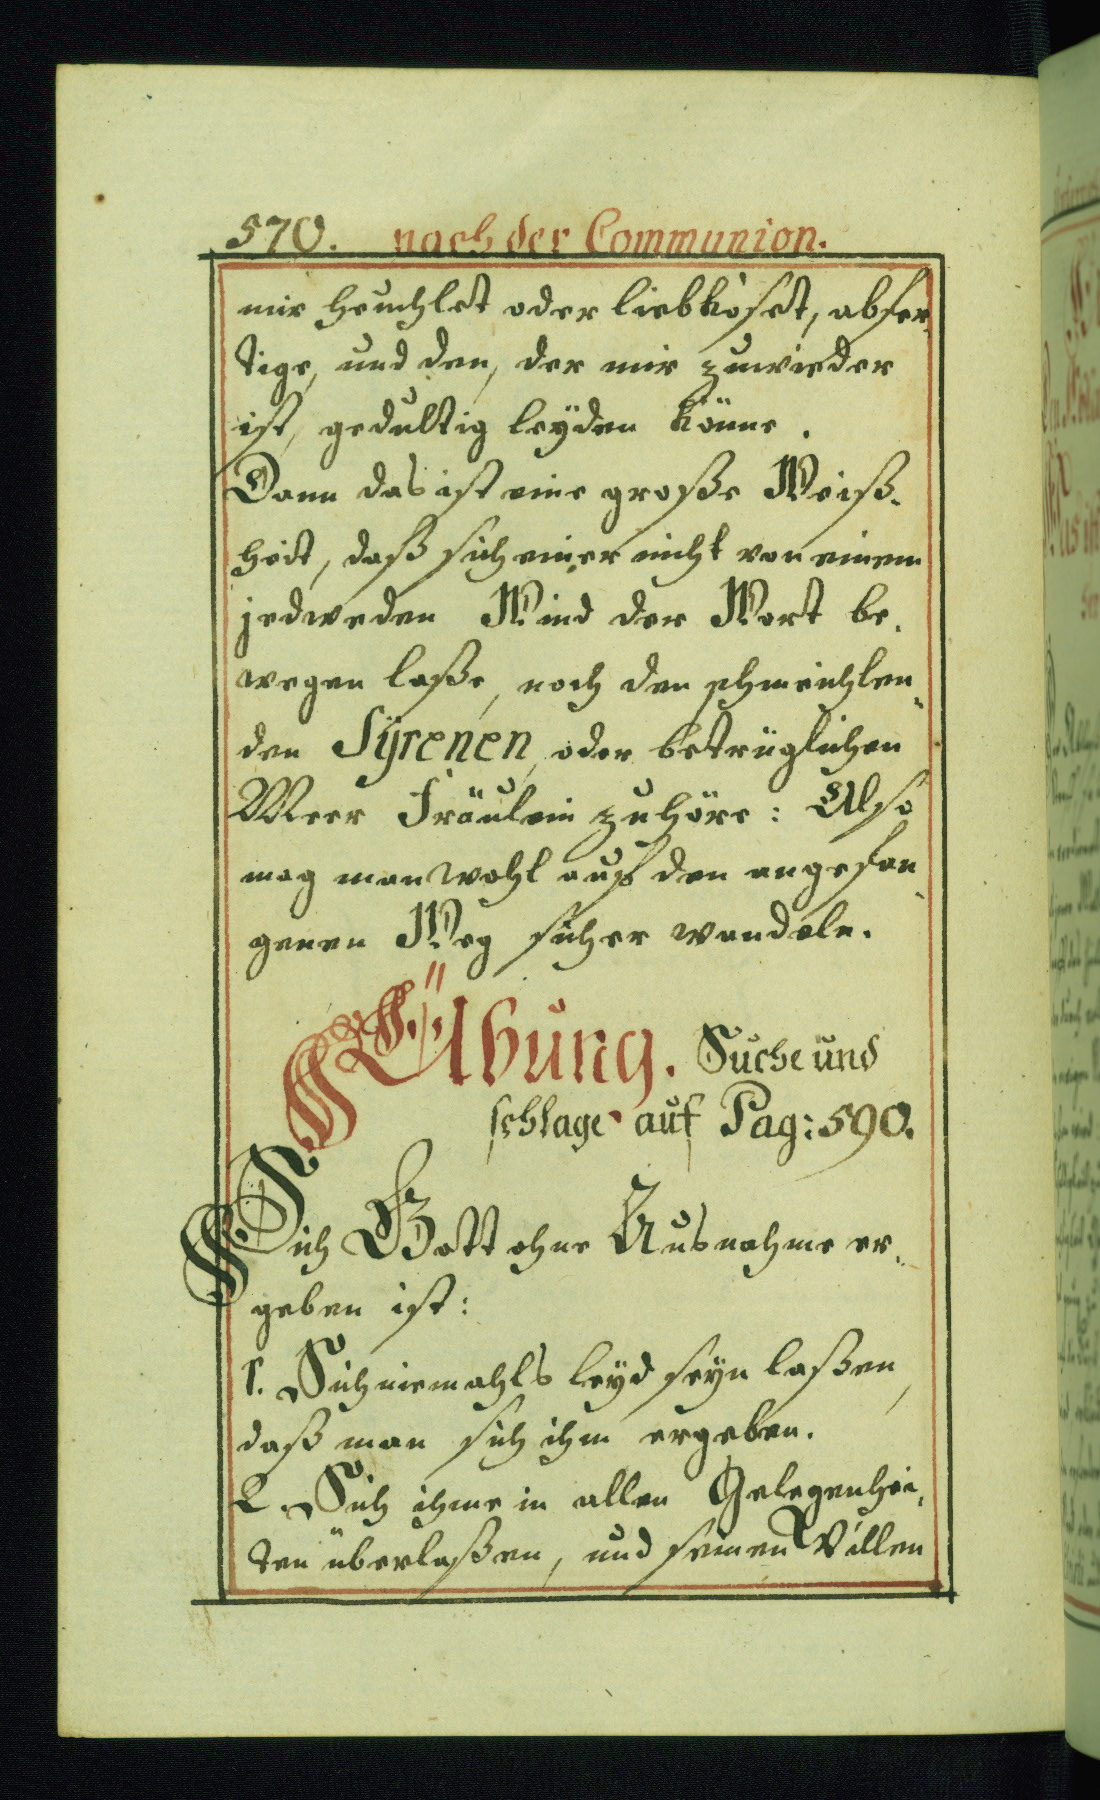 570. nach der Communion.
mir heuchlet oder liebkoset, abfer-
tige, und den, der mir zuwieder
ist, gedultig leyden könne.
Dann das ist eine große Weiß-
heit, daß sich einer nicht von einem
jedweden Wind der Wort be-
wegen laße, noch den schmeichlen-
den Syrenen, oder betrüglichen
Meer Fräulein zuhöre: Also
mag man wohl auf den angefan-
genen Weg sicher wandeln.
Übung. Suche und
schlage auf Pag: 590.
Sich Gott ohne Ausnahme er-
geben ist:
1. Sich niemahls leyd seyn laßen,
daß man sich ihm ergeben.
2. Sich ihme in allen Gelegenhei-
ten überlaßen, und seinen Willen